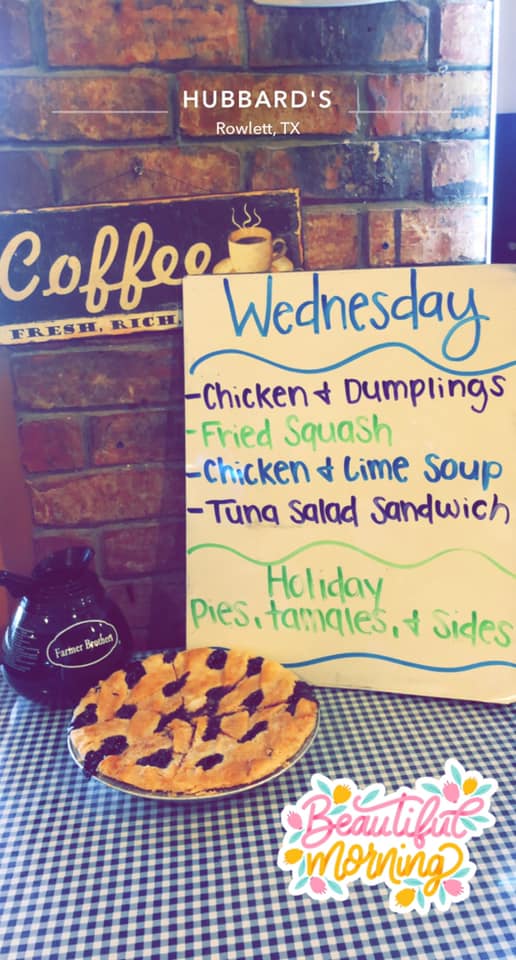 HUBBARD'S
Rowlett, TX
Coffee
FRESH, RICH,
Wednesday
-Chicken & Dumplings
-Fried Squash
-Chicken & Lime Soup
-Tuna Salad Sandwich
Holiday
Pies, tamales, & Sides
Farmer Brothers
Beautiful
morning